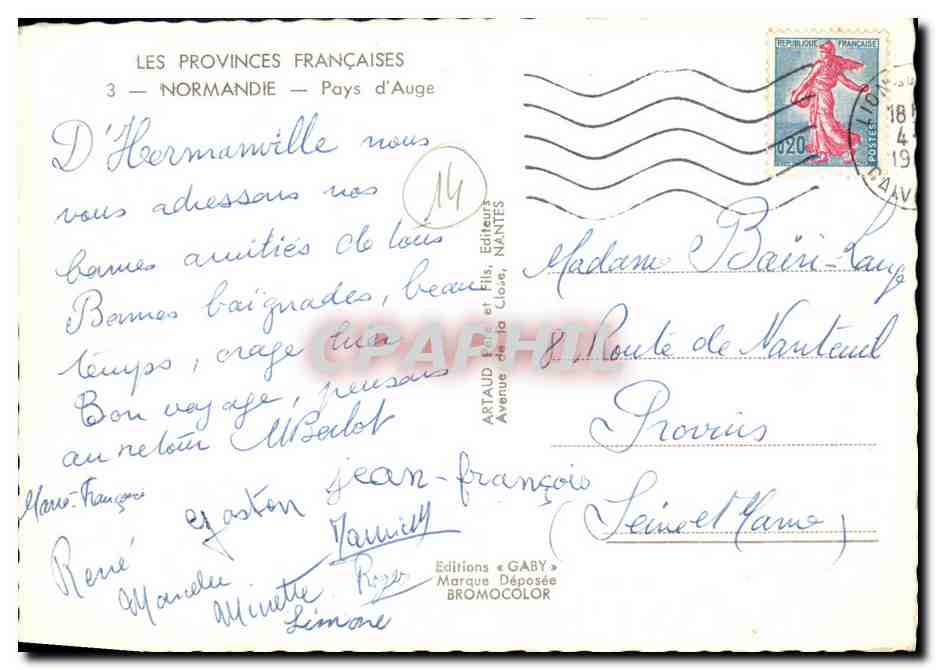 LES PROVINCES FRANÇAISES
3 — NORMANDIE — Pays d'Auge
D'Hermanville nous
vous adressons nos
bonnes amitiés de tous
Bonnes baignades, beau
temps, orage hier
Bon voyage, pensons
au retour MBerlot
Marie-Françoise
Gaston
jean-françois
René
Yannick
Minette
Roger
Simone
14
ARTAUD Père et Fils, Editeurs
Avenue de la Close, NANTES
CPAPHIL
REPUBLIQUE FRANÇAISE
0,20
POSTES
LION
18
4
19
CALV
Madame
8 Route de Nanteuil
Provins
(Seine et Marne)
Editions « GABY »
Marque Déposée
BROMOCOLOR